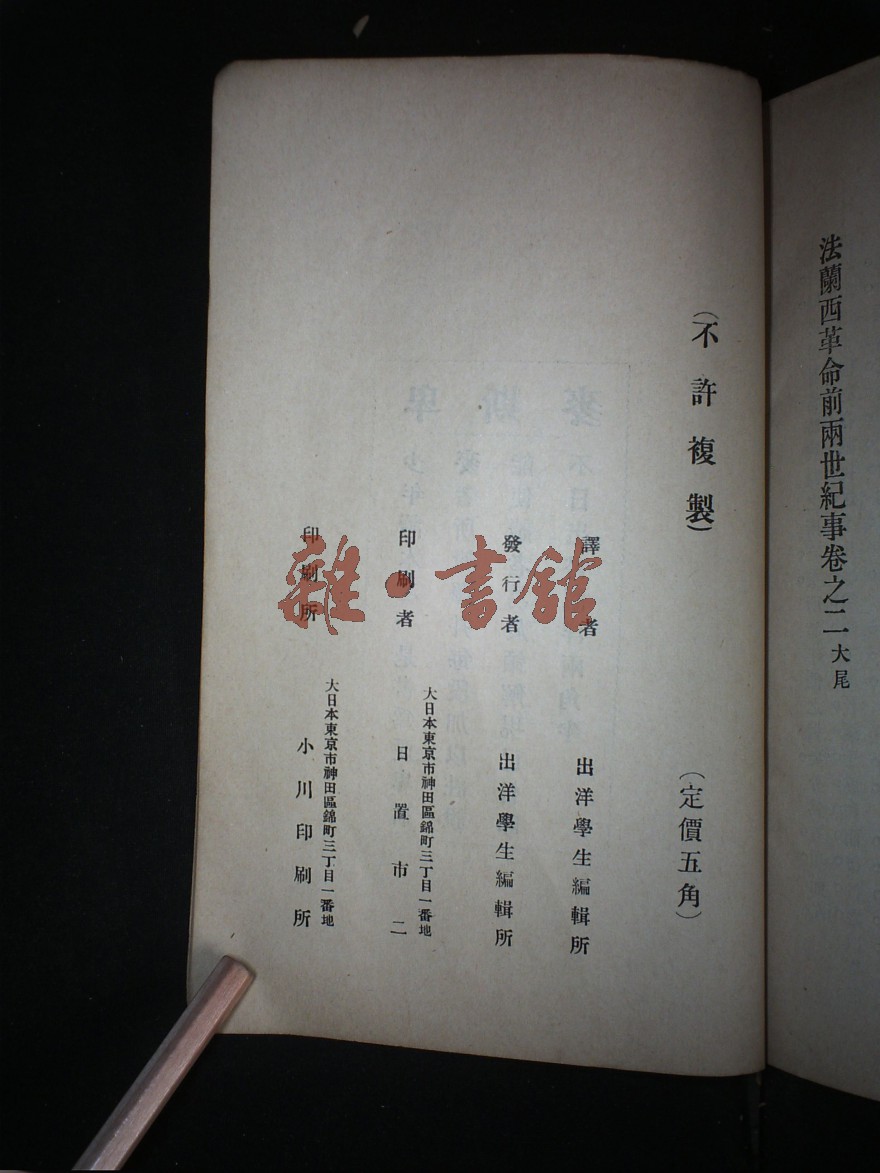 法蘭西革命前兩世紀事卷之二大尾
(不許複製)
(定價五角)
譯者
出洋學生編輯所
發行者
出洋學生編輯所
印刷者
大日本東京市神田區錦町三丁目一番地
日置市二
印刷所
大日本東京市神田區錦町三丁目一番地
小川印刷所
雜·書館